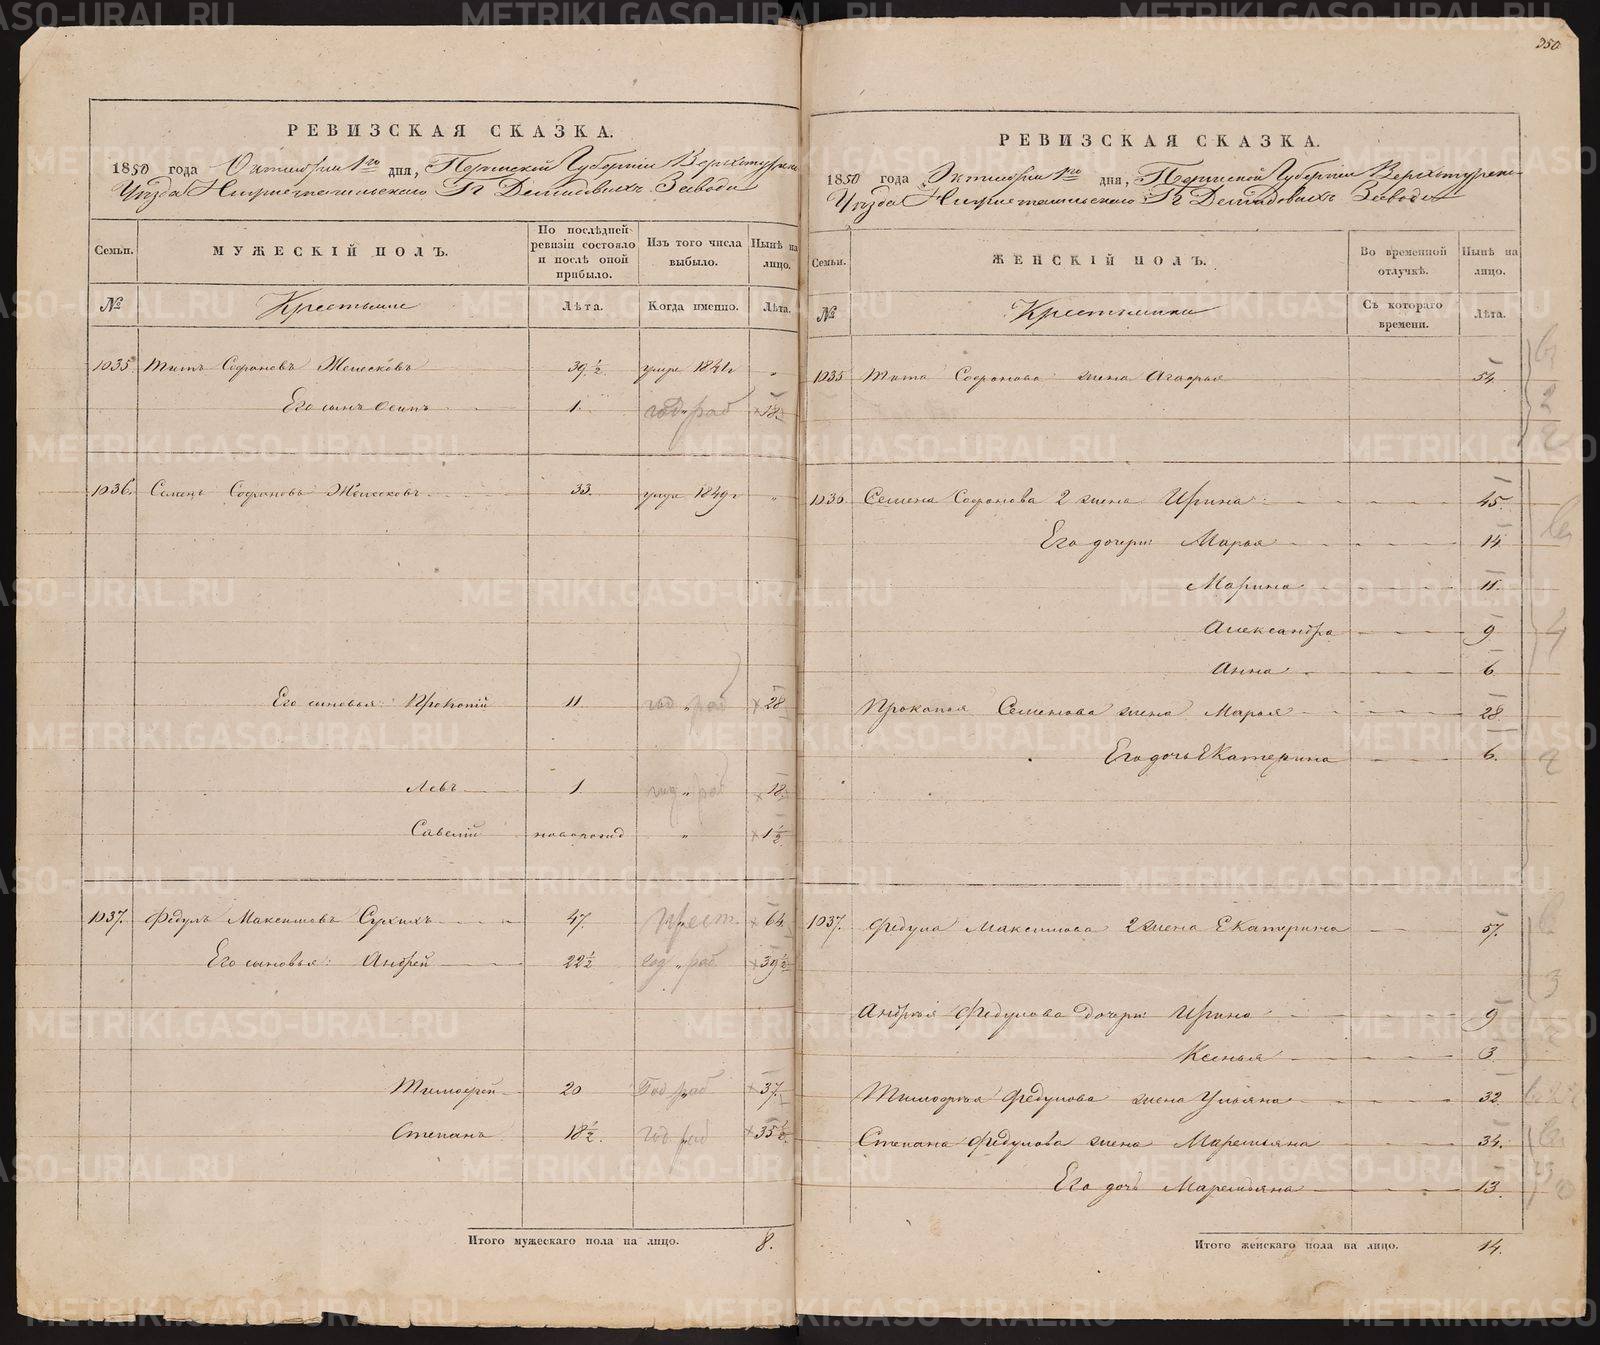 350
РЕВИЗСКАЯ СКАЗКА.
1850 года Октября 1го дня, Пермской Губернии Верхотурска
Уезда Нижнетагильскаго Гг Демидовыхъ Завода
Семьи. МУЖЕСКІЙ ПОЛЪ. По последней ревизіи состояло и после оной прибыло. Изъ того числа выбыло. Ныне на лицо.
№ Крестьяне Лета. Когда именно. Лета.
1035 Титъ Софроновъ 39 1/2 умре 1841г "
Его сынъ Осипъ 1. год. раб ×18
1036. Семенъ Софроновъ 33. умре 1849г "
Его сыновья: Прокопій 11 год " раб ×28
Левъ 1. год " раб ×18
Савелій новорожд " ×1 1/2
1037. Федулъ Максимовъ Сухихъ 47. Прест. ×64
Его сыновья: Андрей 22 1/2 Год " раб ×39 1/2
Тимофей 20 Год раб ×37.
Степанъ 18 1/2. год раб ×35 1/2
Итого мужескаго пола на лицо. 8.
РЕВИЗСКАЯ СКАЗКА.
1850 года Октября 1го дня, Пермской Губерніи Верхотурска
Уезда Нижнетагильскаго Гг Демидовыхъ Завода
Семьи. ЖЕНСКІЙ ПОЛЪ. Во временной отлучкѣ. Нынѣ на лицо.
№ Крестьянки Съ котораго времени. Лѣта.
1035 Тита Софронова жена Агафья 54.
1036 Семена Софронова 2 жена Ирина 45.
Его дочери: Марья 14
Марина 11.
Александра 9
Анна 6.
Прокопья Семенова жена Марья 28.
Его дочь Екатерина 6.
1037. Федула Максимова 2 жена Екатерина 57.
Андрея Федулова дочери: Ирина 9
Ксенья 3
Тимофея Федулова жена Ульяна 32
Степана Федулова жена Маремьяна 34.
Его дочь Маремьяна 13
Итого женскаго пола на лицо. 14.
METRIKI.GASO-URAL.RU